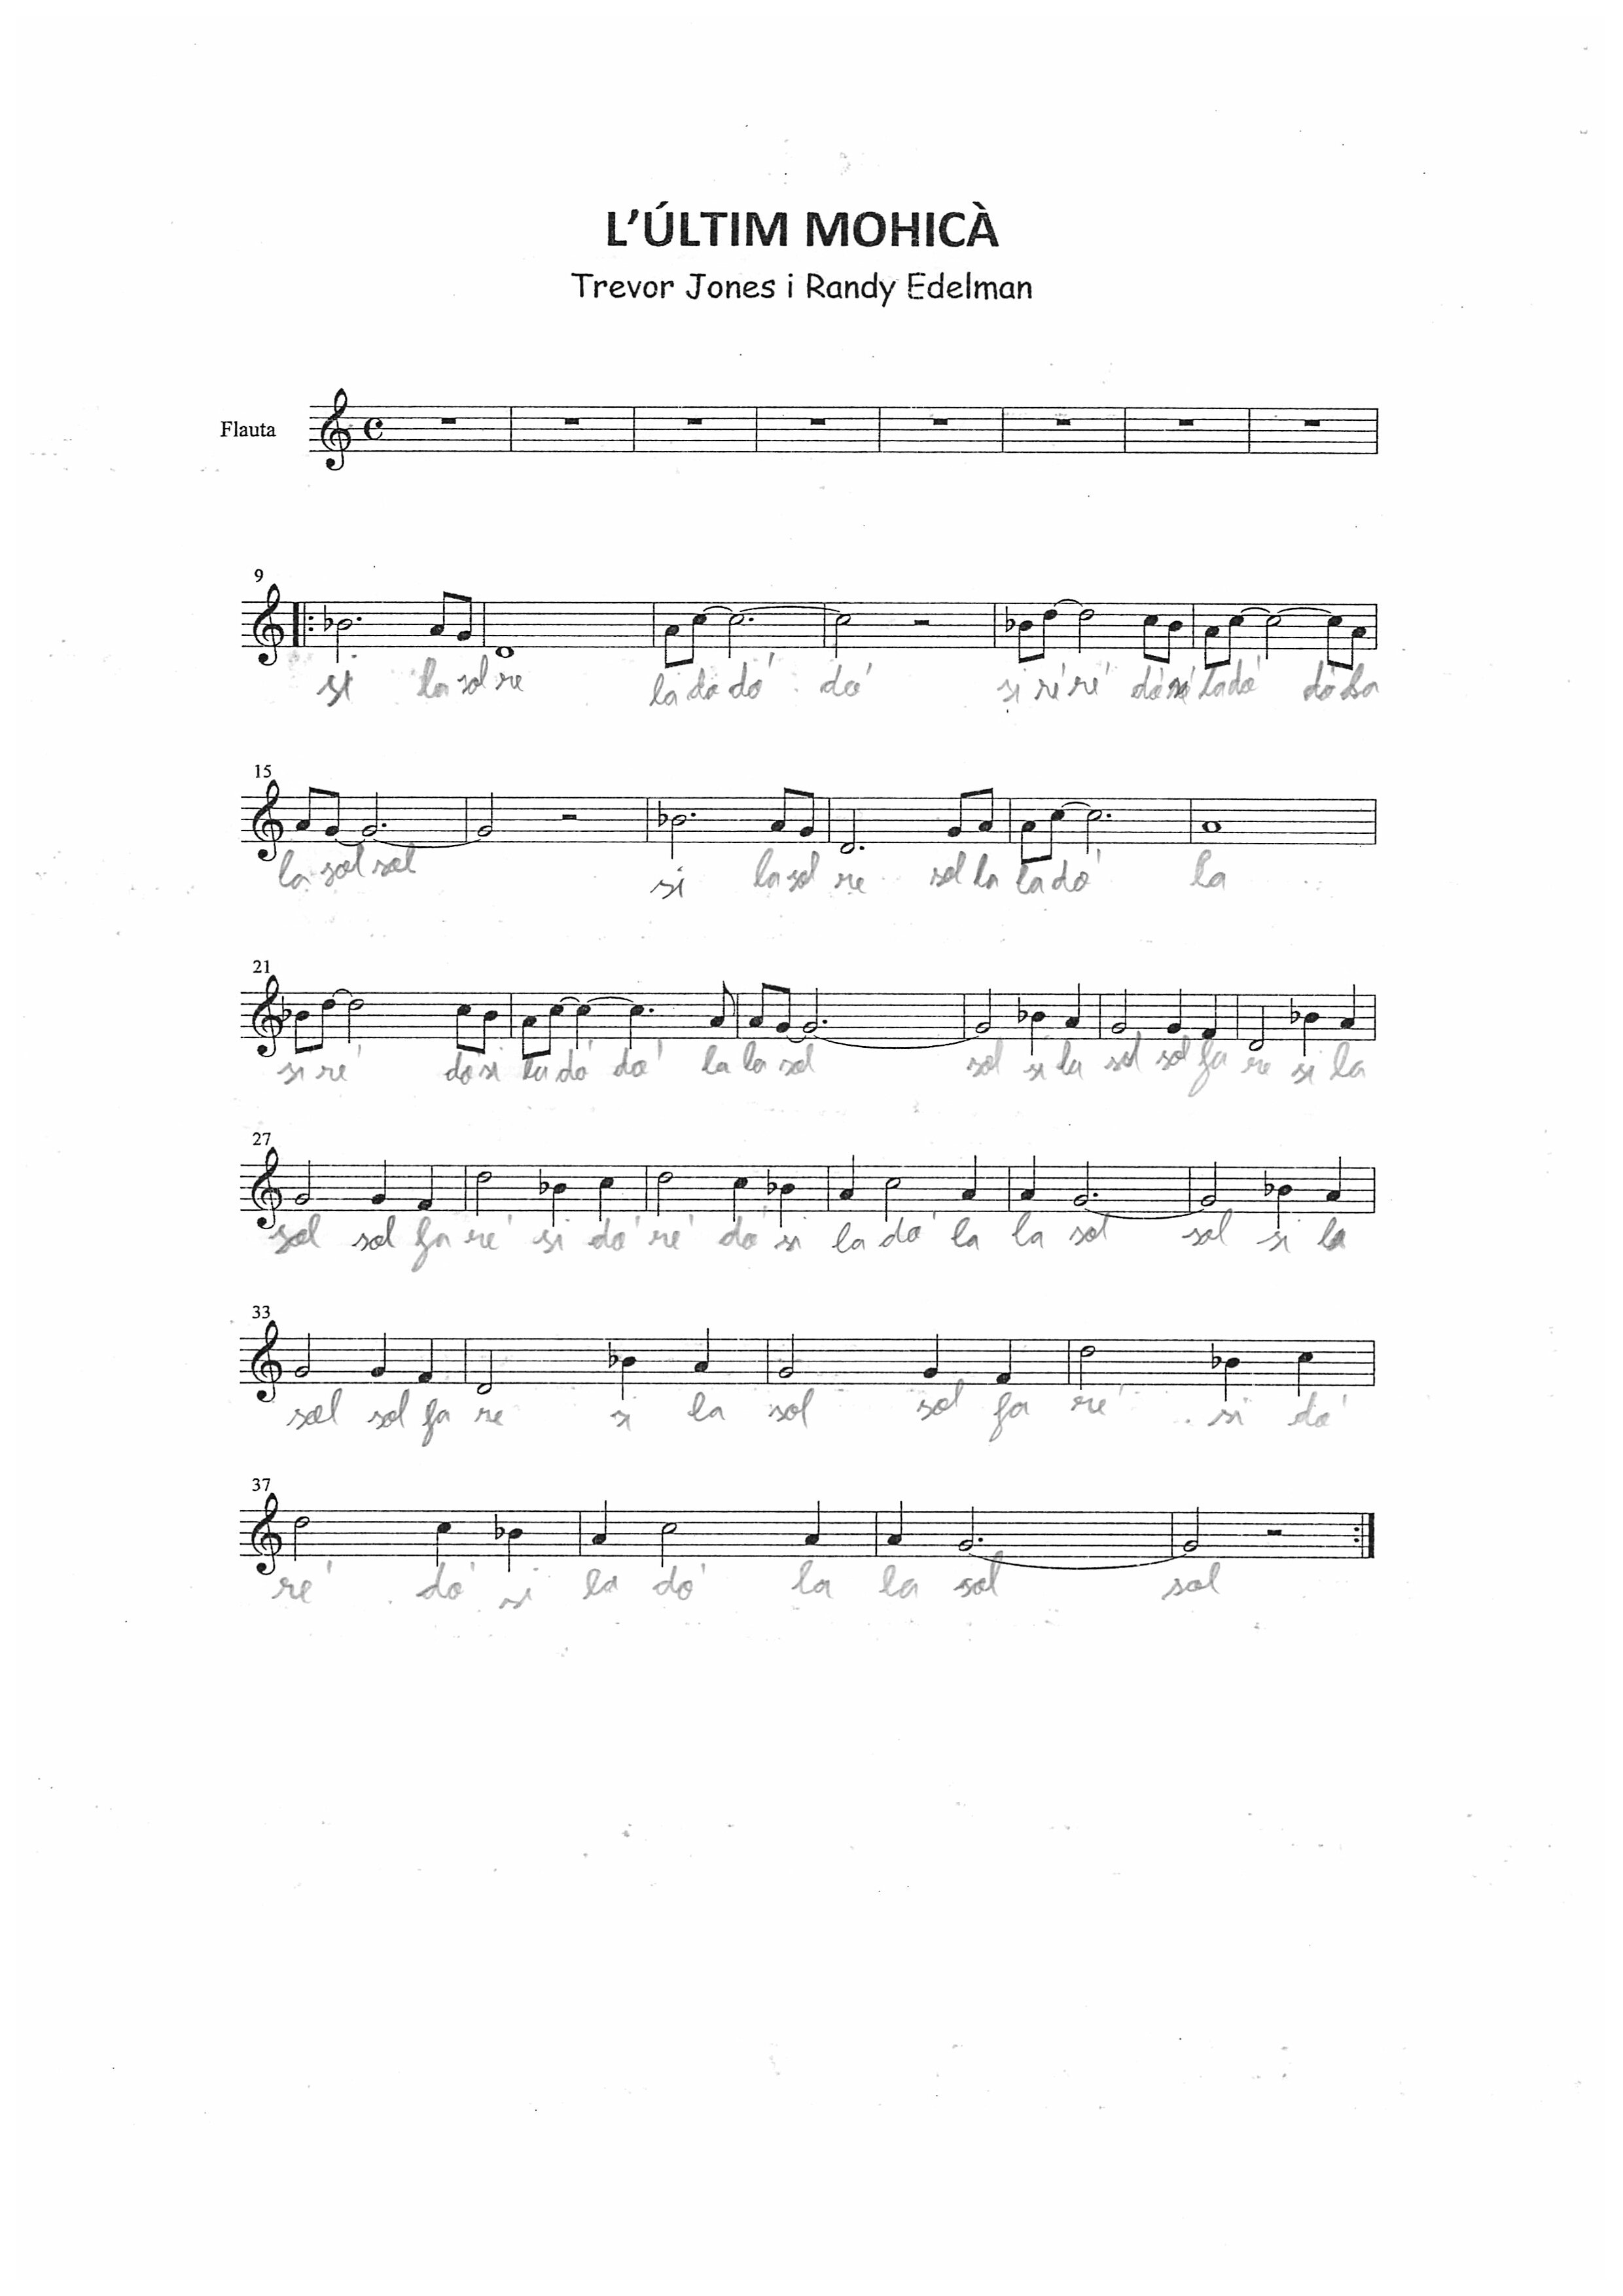 L'ÚLTIM MOHICÀ
Trevor Jones i Randy Edelman
Flauta
9
si la sol re la do dó dó si ré ré dó si la dó dó la
15
la sol sol si la sol re sol la la dó la
21
si ré do si la dó dó la la sol sol si la sol sol fa re si la
27
sol sol fa ré si dó ré dó si la dó la la sol sol si la
33
sol sol fa re si la sol sol fa ré si dó
37
ré dó si la dó la la sol sol